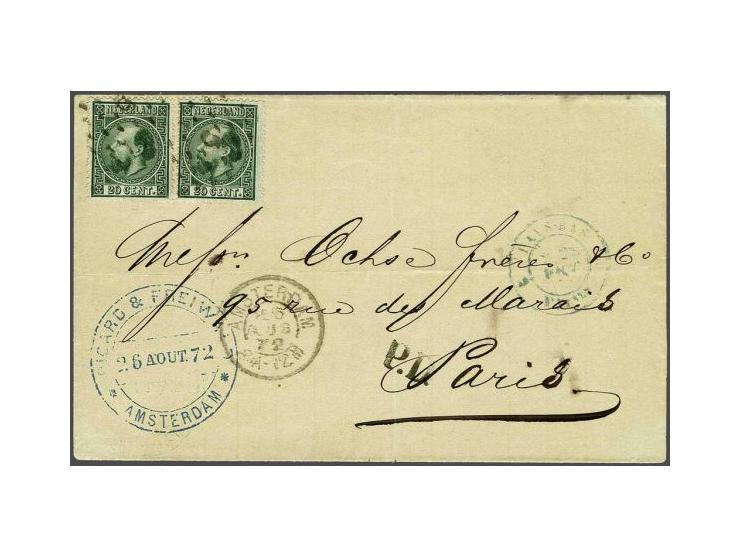 NEDERLAND
20 CENT.
NEDERLAND
20 CENT.
Messrs. Ochse frères & Co
95 rue des Marais
Paris
RICARD & FREIW
26 AOUT. 72
* AMSTERDAM *
AMSTERDAM
26
AUG
72
P.D.